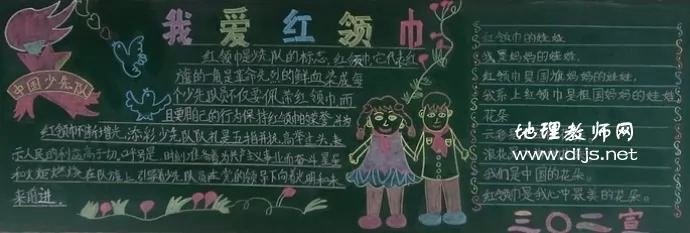 中国少先队
我爱红领巾
红领巾是少先队的标志,红领巾,它代表红
旗的一角是革命先烈的鲜血染成每
个少先队员不仅要佩带红领巾而
且要用自己的行为保持红领巾的荣誉并为
红领巾不断增光,添彩少先队队礼是五指并拢,高举过头表
示人民的利益高于切,呼号是,时刻准备着为共产主义事业而奋斗星星
和火炬在队旗上,引导着少先队员在党的领导下向着光明和未
来前进。
红领巾的娃娃
我是妈妈的娃娃,
红领巾是国旗妈妈的娃娃,
我系上红领巾是祖国妈妈的娃娃
花朵
云彩
浪花是
我们是中国的花朵。
红领巾是我心中最美的花朵。
三〇二宣
地理教师网
www.dljs.net